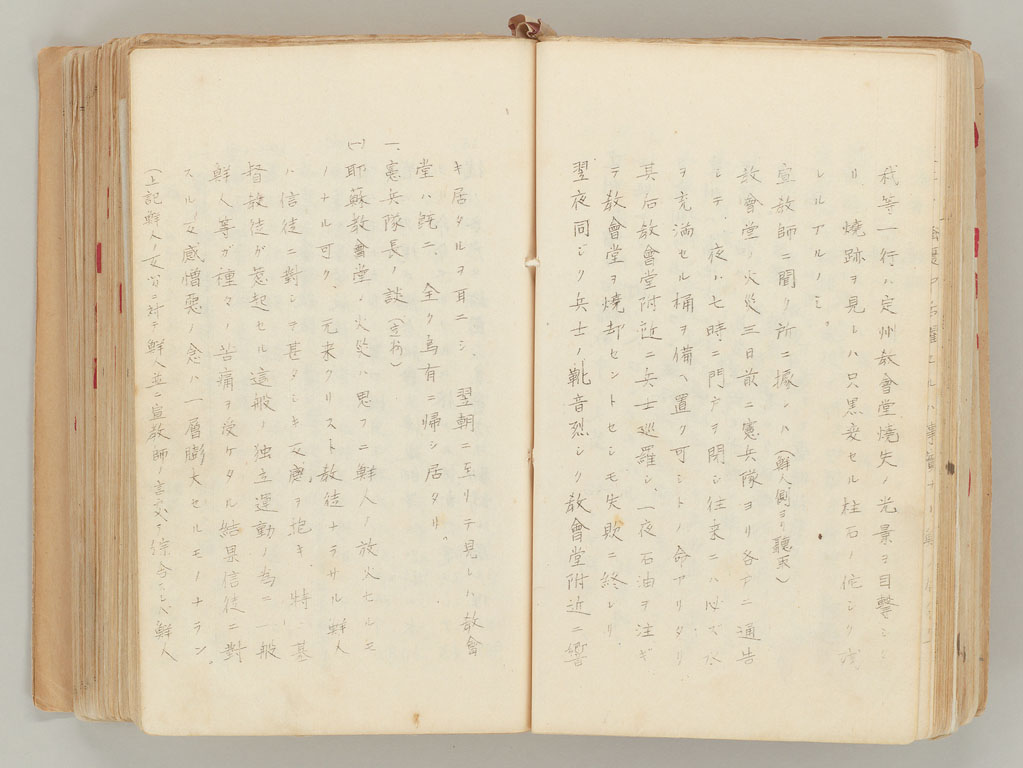 我等一行ハ定州教會堂燒失ノ光景ヲ目撃シ
リ、燒跡ヲ見レハ只黒変セル柱石ノ佗シク残
レルアルノミ
宣教師ニ聞ク所ニ據レハ（鮮人側ヨリ聽取）
教會堂ノ火災三日前ニ憲兵隊ヨリ各戸ニ通告
シテ、夜ハ七時ニ門戸ヲ閉シ往来ニハ必ズ水
ヲ充満セル桶ヲ備ヘ置ク可シトノ命アリタリ
其后教會堂附近ニ兵士巡羅シ、一夜石油ヲ注ギ
テ教會堂ヲ燒却セントセシモ失敗ニ終レリ、
翌夜同ジク兵士ノ靴音烈シク教會堂附近ニ響
キ居タルヲ耳ニシ、翌朝ニ至リテ見レハ教會
堂ハ既ニ、全ク烏有ニ帰シ居タリ。
一、憲兵隊長ノ談（定州）
(一)耶蘇教會堂ノ火災ハ思フニ鮮人ノ放火セルモ
ノナル可ク、元来クリスト教徒ナラサル鮮人
ハ信徒ニ對シヲ甚タシキ反感ヲ抱キ、特ニ基
督教徒ガ惹起セル這般ノ独立運動ノ為ニ一般
鮮人等ガ種々ノ苦痛ヲ受ケタル結果信徒ニ對
スルノ反感憎悪ノ念ハ一層膨大セルモノナラン。
（上記鮮人ノ反省ニ対テ鮮人並ニ宣教師ノ言ヲ綜合シレバ鮮人